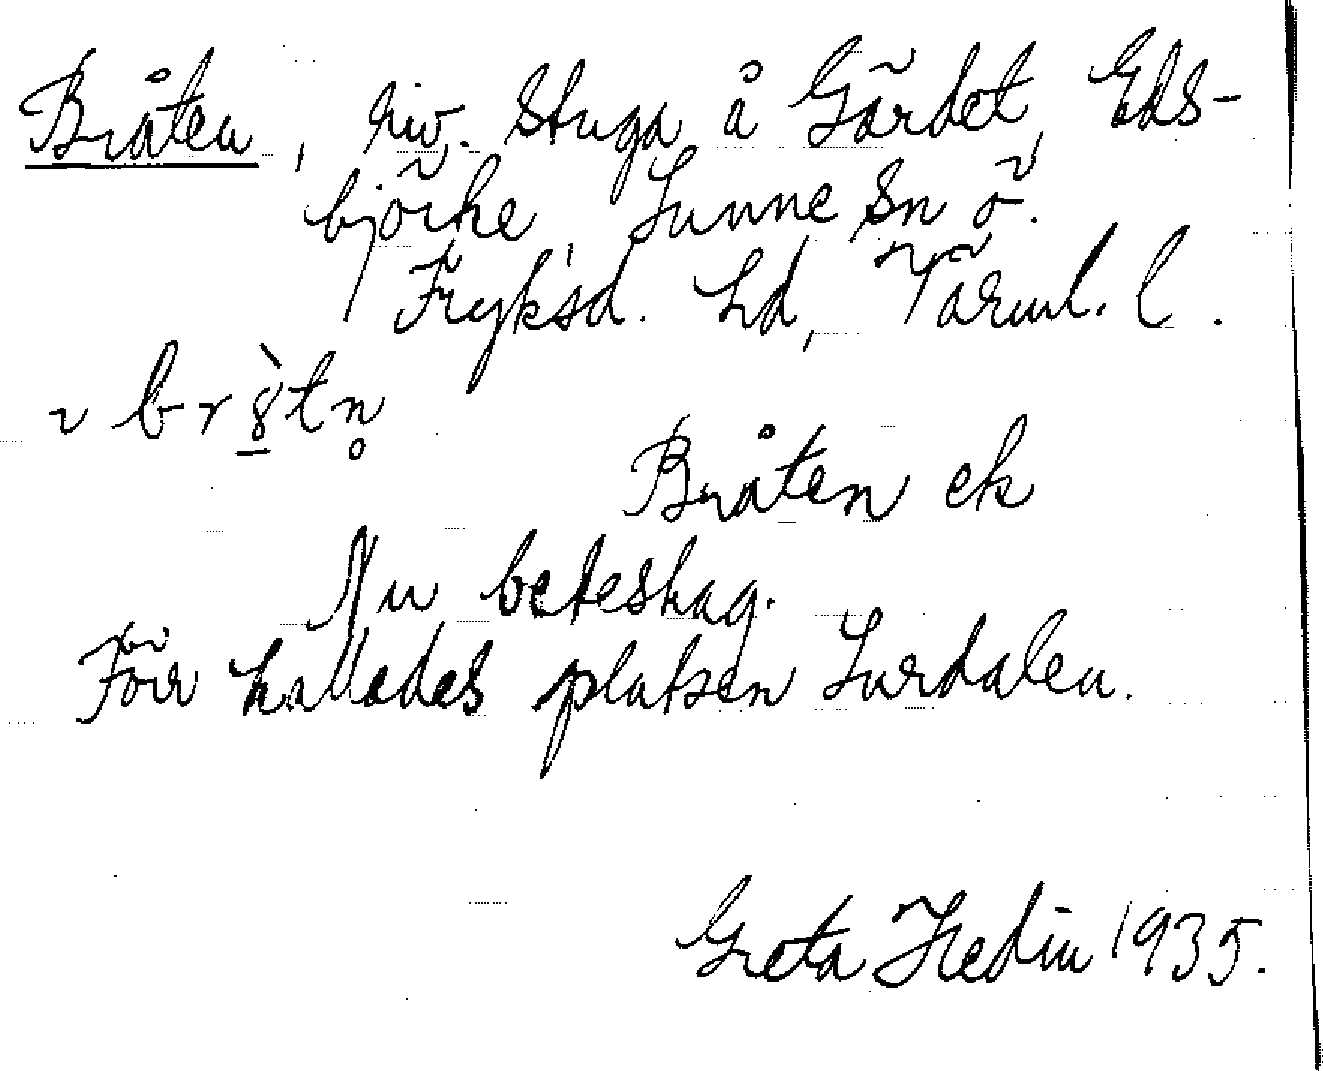 Bråten, riv. stuga å Gärdet, Eds-
björke, Sunne sn ö.
Fryksd. hd, Värml. l.
Bråten ek
Nu beteshag.
Förr kallades platsen Surdalen.
Greta Hedin 1935.